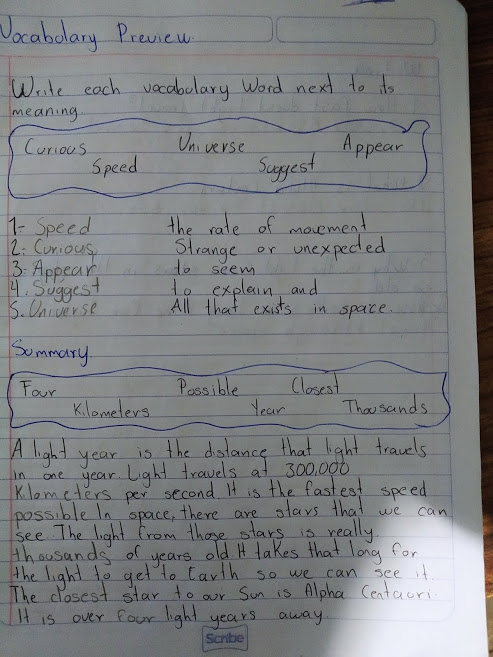 Vocabolary Preview.
Write each vocabolary Word next to its
meaning.
Curious Universe Appear
Speed Suggest
1- Speed the rate of movement
2- Curious Strange or unexpected
3- Appear to seem
4. Suggest to explain and
5. Universe All that exists in space.
Summary
Four Possible Closest
Kilometers Year Thousands
A light year is the distance that light travels
in one year. Light travels at 300.000
Kilometers per second It is the fastest speed
possible In space, there are stars that we can
see. The light from those stars is really
thousands of years old. It takes that long for
the light to get to Earth so we can see it.
The closest star to our Sun is Alpha Centauri.
It is over four light years away.
Scribe